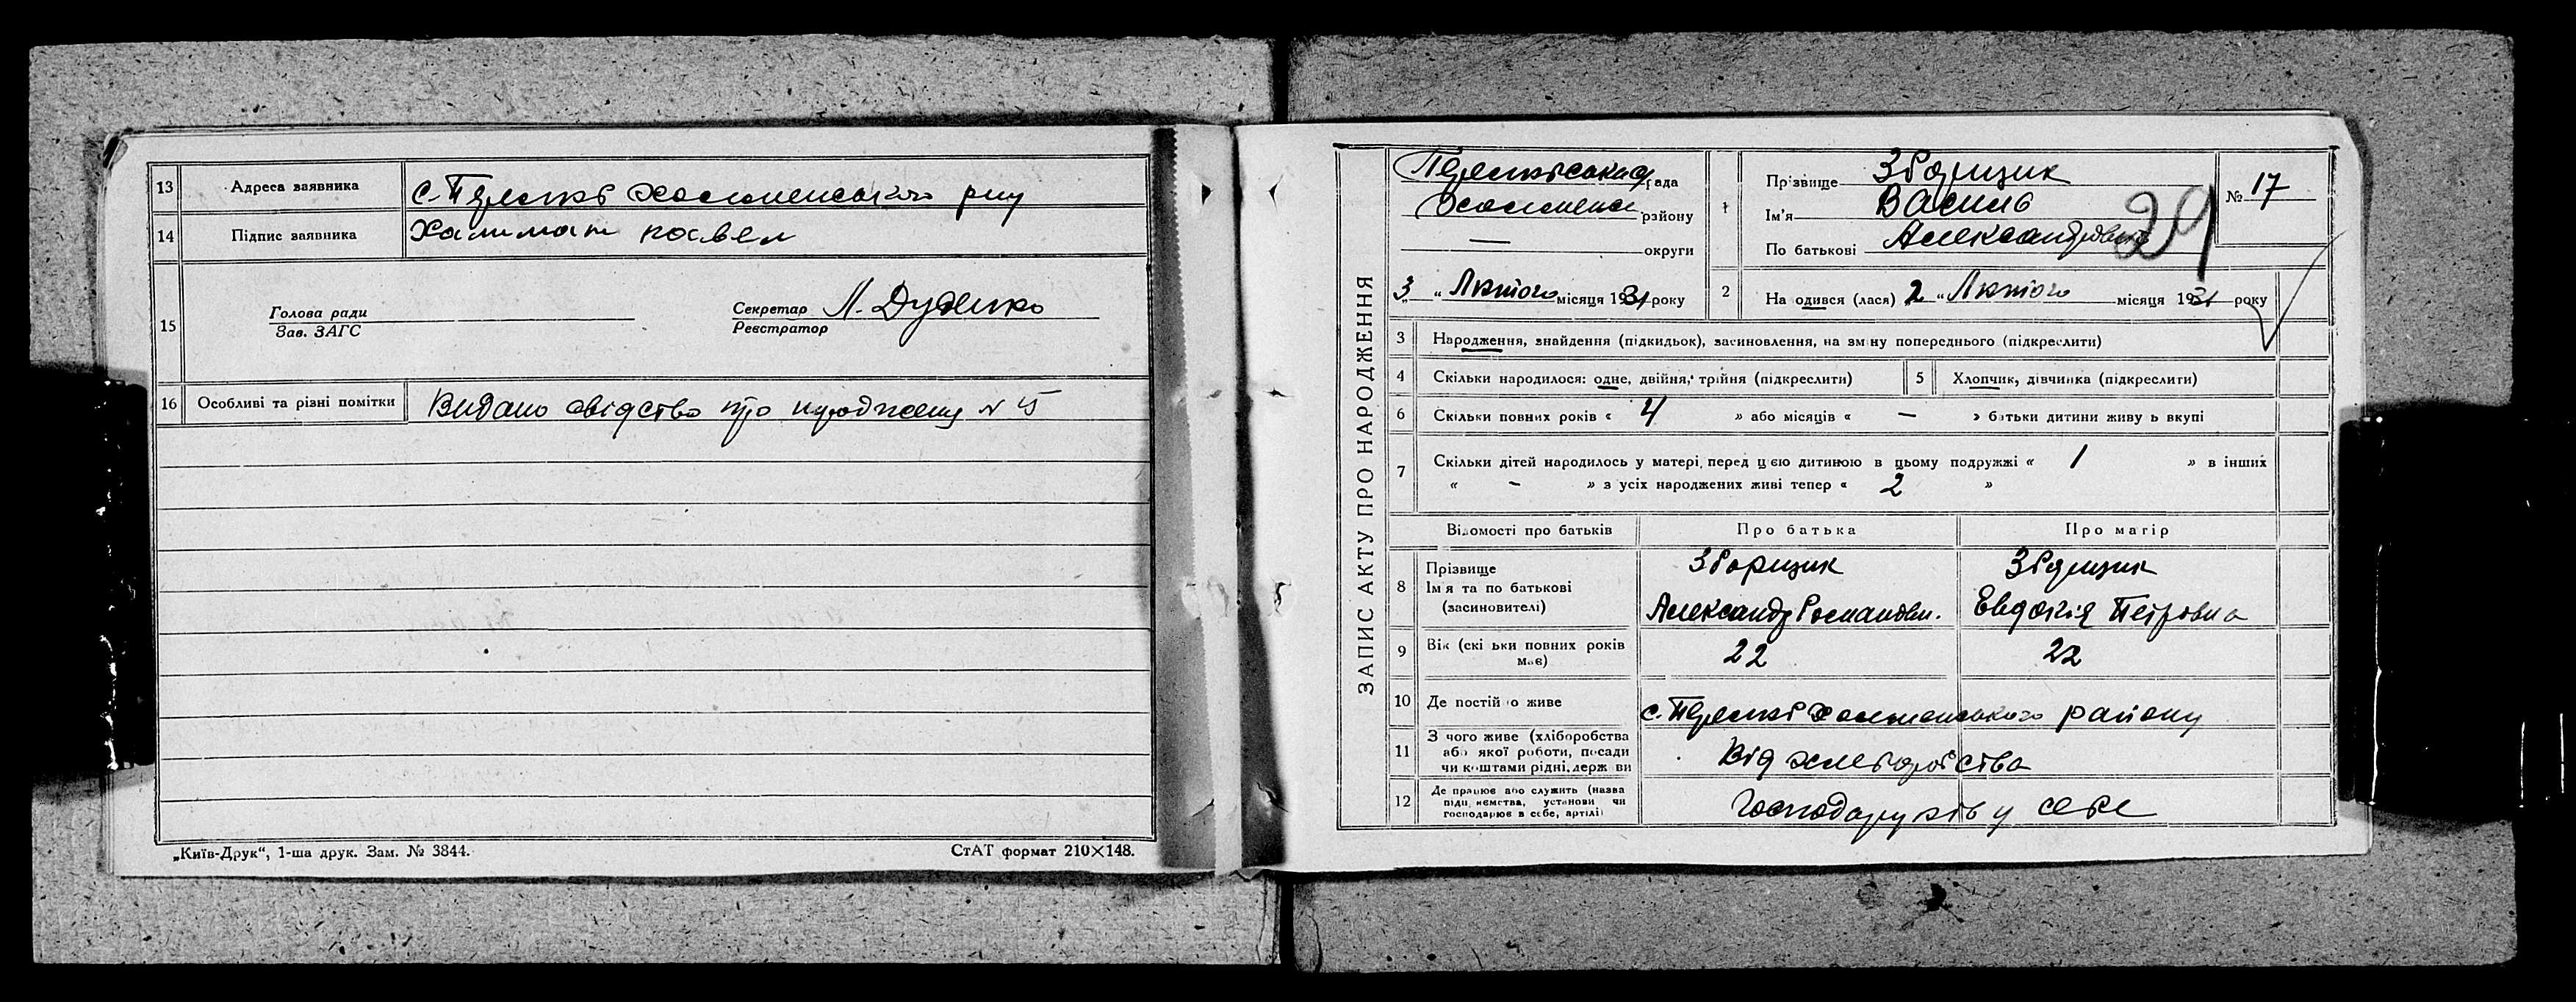 13 Адреса заявника с. Перелюб Холменського р-ну
14 Підпис заявника Халимон
15 Голова ради
Зав. ЗАГС
Секретар Л. Дуденко
Реєстратор
16 Особливі та різні помітки Видано свідство про народжену N 15
„Київ-Друк“, 1-ша друк. Зам. № 3844.
СтАТ формат 210×148.
ЗАПИС АКТУ ПРО НАРОДЖЕННЯ
рада
району
— округи
3 „ Лютого місяця 1931 року
1 Прізвище Зборщик
Ім'я Василь
По батькові Александрович
№ 17
29
2 Народився (лася) 2 „ Лютого місяця 1931 року
3 Народження, знайдення (підкидьок), засиновлення, на зміну попереднього (підкреслити)
4 Скільки народилося: одне, двійня, трійня (підкреслити)
5 Хлопчик, дівчинка (підкреслити)
6 Скільки повних років « 4 » або місяців « — » батьки дитини живуть вкупі
7 Скільки дітей народилось у матері перед цією дитиною в цьому подружжі « 1 » в інших
« - » з усіх народжених живі тепер « 2 »
Відомості про батьків Про батька Про матір
8 Прізвище
Ім'я та по батькові
(засиновителі)
Зборщик
Александр Романович.
Зборщик
Евдокія Петровна
9 Вік (скільки повних років має) 22 22
10 Де постійно живе с. Перелюб Холменського району
11 З чого живе (хліборобства
або якої роботи, посади
чи коштами рідні, держави
Від хлеборобства
12 Де працює або служить (назва
підприємства, установи чи
господарює в себе, артілі)
у себе